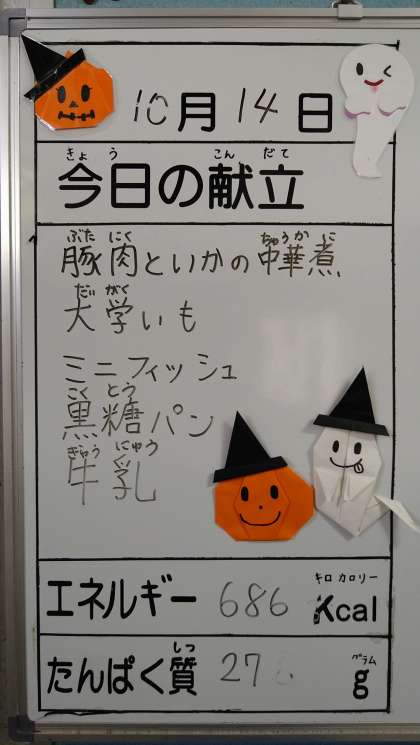 10月14日
きょう こんだて
今日の献立
ぶたにく ちゅうかに
豚肉といかの中華煮
だいがく
大学いも
ミニフィッシュ
こくとう
黒糖パン
ぎゅうにゅう
牛乳
キロカロリー
エネルギー 686 Kcal
しつ グラム
たんぱく質 27 g